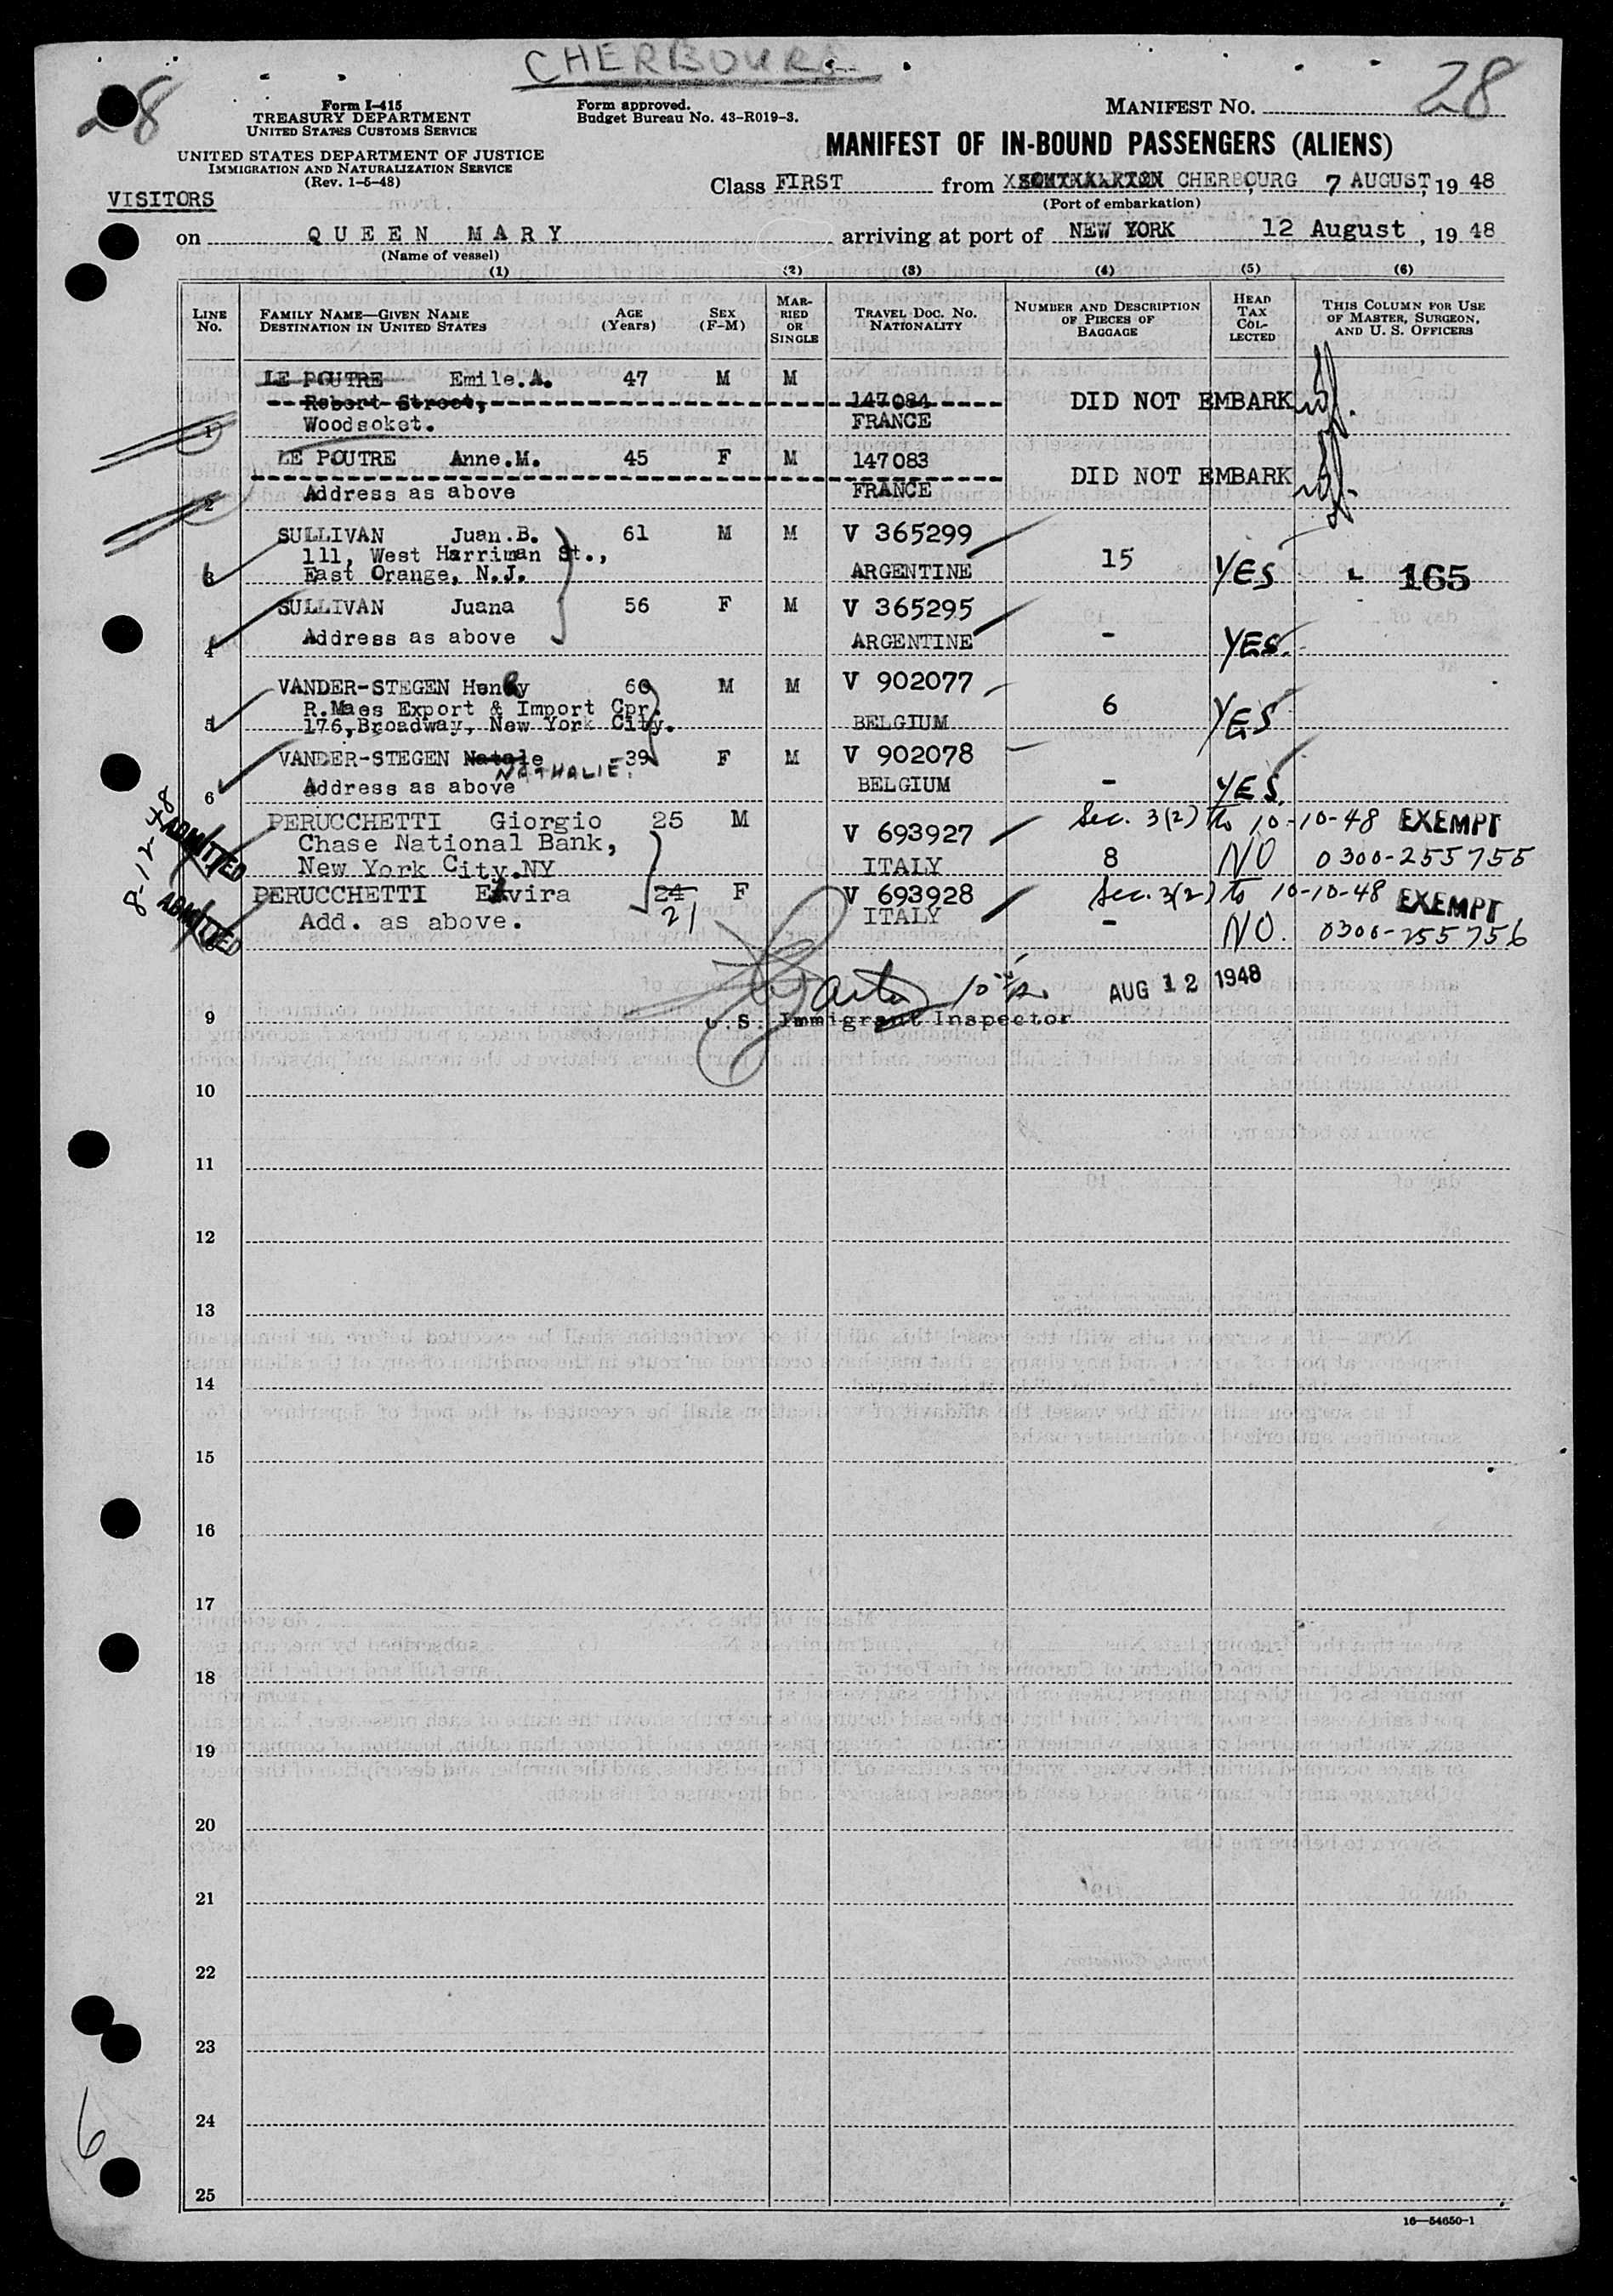 CHERBOURG
28
28
Form I-415
TREASURY DEPARTMENT
UNITED STATES CUSTOMS SERVICE
Form approved.
Budget Bureau No. 43-R019-3.
MANIFEST NO.
UNITED STATES DEPARTMENT OF JUSTICE
IMMIGRATION AND NATURALIZATION SERVICE
(Rev. 1-5-48)
MANIFEST OF IN-BOUND PASSENGERS (ALIENS)
VISITORS
Class FIRST from CHERBOURG 7 AUGUST, 19 48
(Port of embarkation)
on QUEEN MARY arriving at port of NEW YORK 12 August, 19 48
(Name of vessel)
(1) (2) (3) (4) (5) (6)
LINE No. FAMILY NAME—GIVEN NAME DESTINATION IN UNITED STATES AGE (Years) SEX (F-M) MARRIED OR SINGLE TRAVEL DOC. NO. NATIONALITY NUMBER AND DESCRIPTION OF PIECES OF BAGGAGE HEAD TAX COLLECTED THIS COLUMN FOR USE OF MASTER, SURGEON, AND U. S. OFFICERS
LE POUTRE Emile.A. 47 M M
Robert Street, 147084 DID NOT EMBARK
1 Woodsoket. FRANCE
LE POUTRE Anne.M. 45 F M 147083
DID NOT EMBARK
2 Address as above FRANCE
SULLIVAN Juan.B. 61 M M V 365299
111, West Harriman St.,
3 East Orange, N.J. ARGENTINE 15 YES 165
SULLIVAN Juana 56 F M V 365295
4 Address as above ARGENTINE - YES.
VANDER-STEGEN Henry 60 M M V 902077
R.Maes Export & Import Cpr.
5 176,Broadway, New York City. BELGIUM 6 YES
VANDER-STEGEN Natale 39 F M V 902078
NATHALIE.
6 Address as above BELGIUM - YES.
PERUCCHETTI Giorgio 25 M V 693927 Sec. 3(2) to 10-10-48 EXEMPT
Chase National Bank,
New York City.NY ITALY 8 NO 0300-255755
8-12-48
ADMITTED
PERUCCHETTI Elvira 24 F V 693928 Sec. 3(2) to 10-10-48 EXEMPT
21
Add. as above. ITALY - NO. 0300-255756
ADMITTED
AUG 12 1948
9 U.S. Immigrant Inspector
10
11
12
13
14
15
16
17
18
19
20
21
22
23
24
25
6
16—54650-1